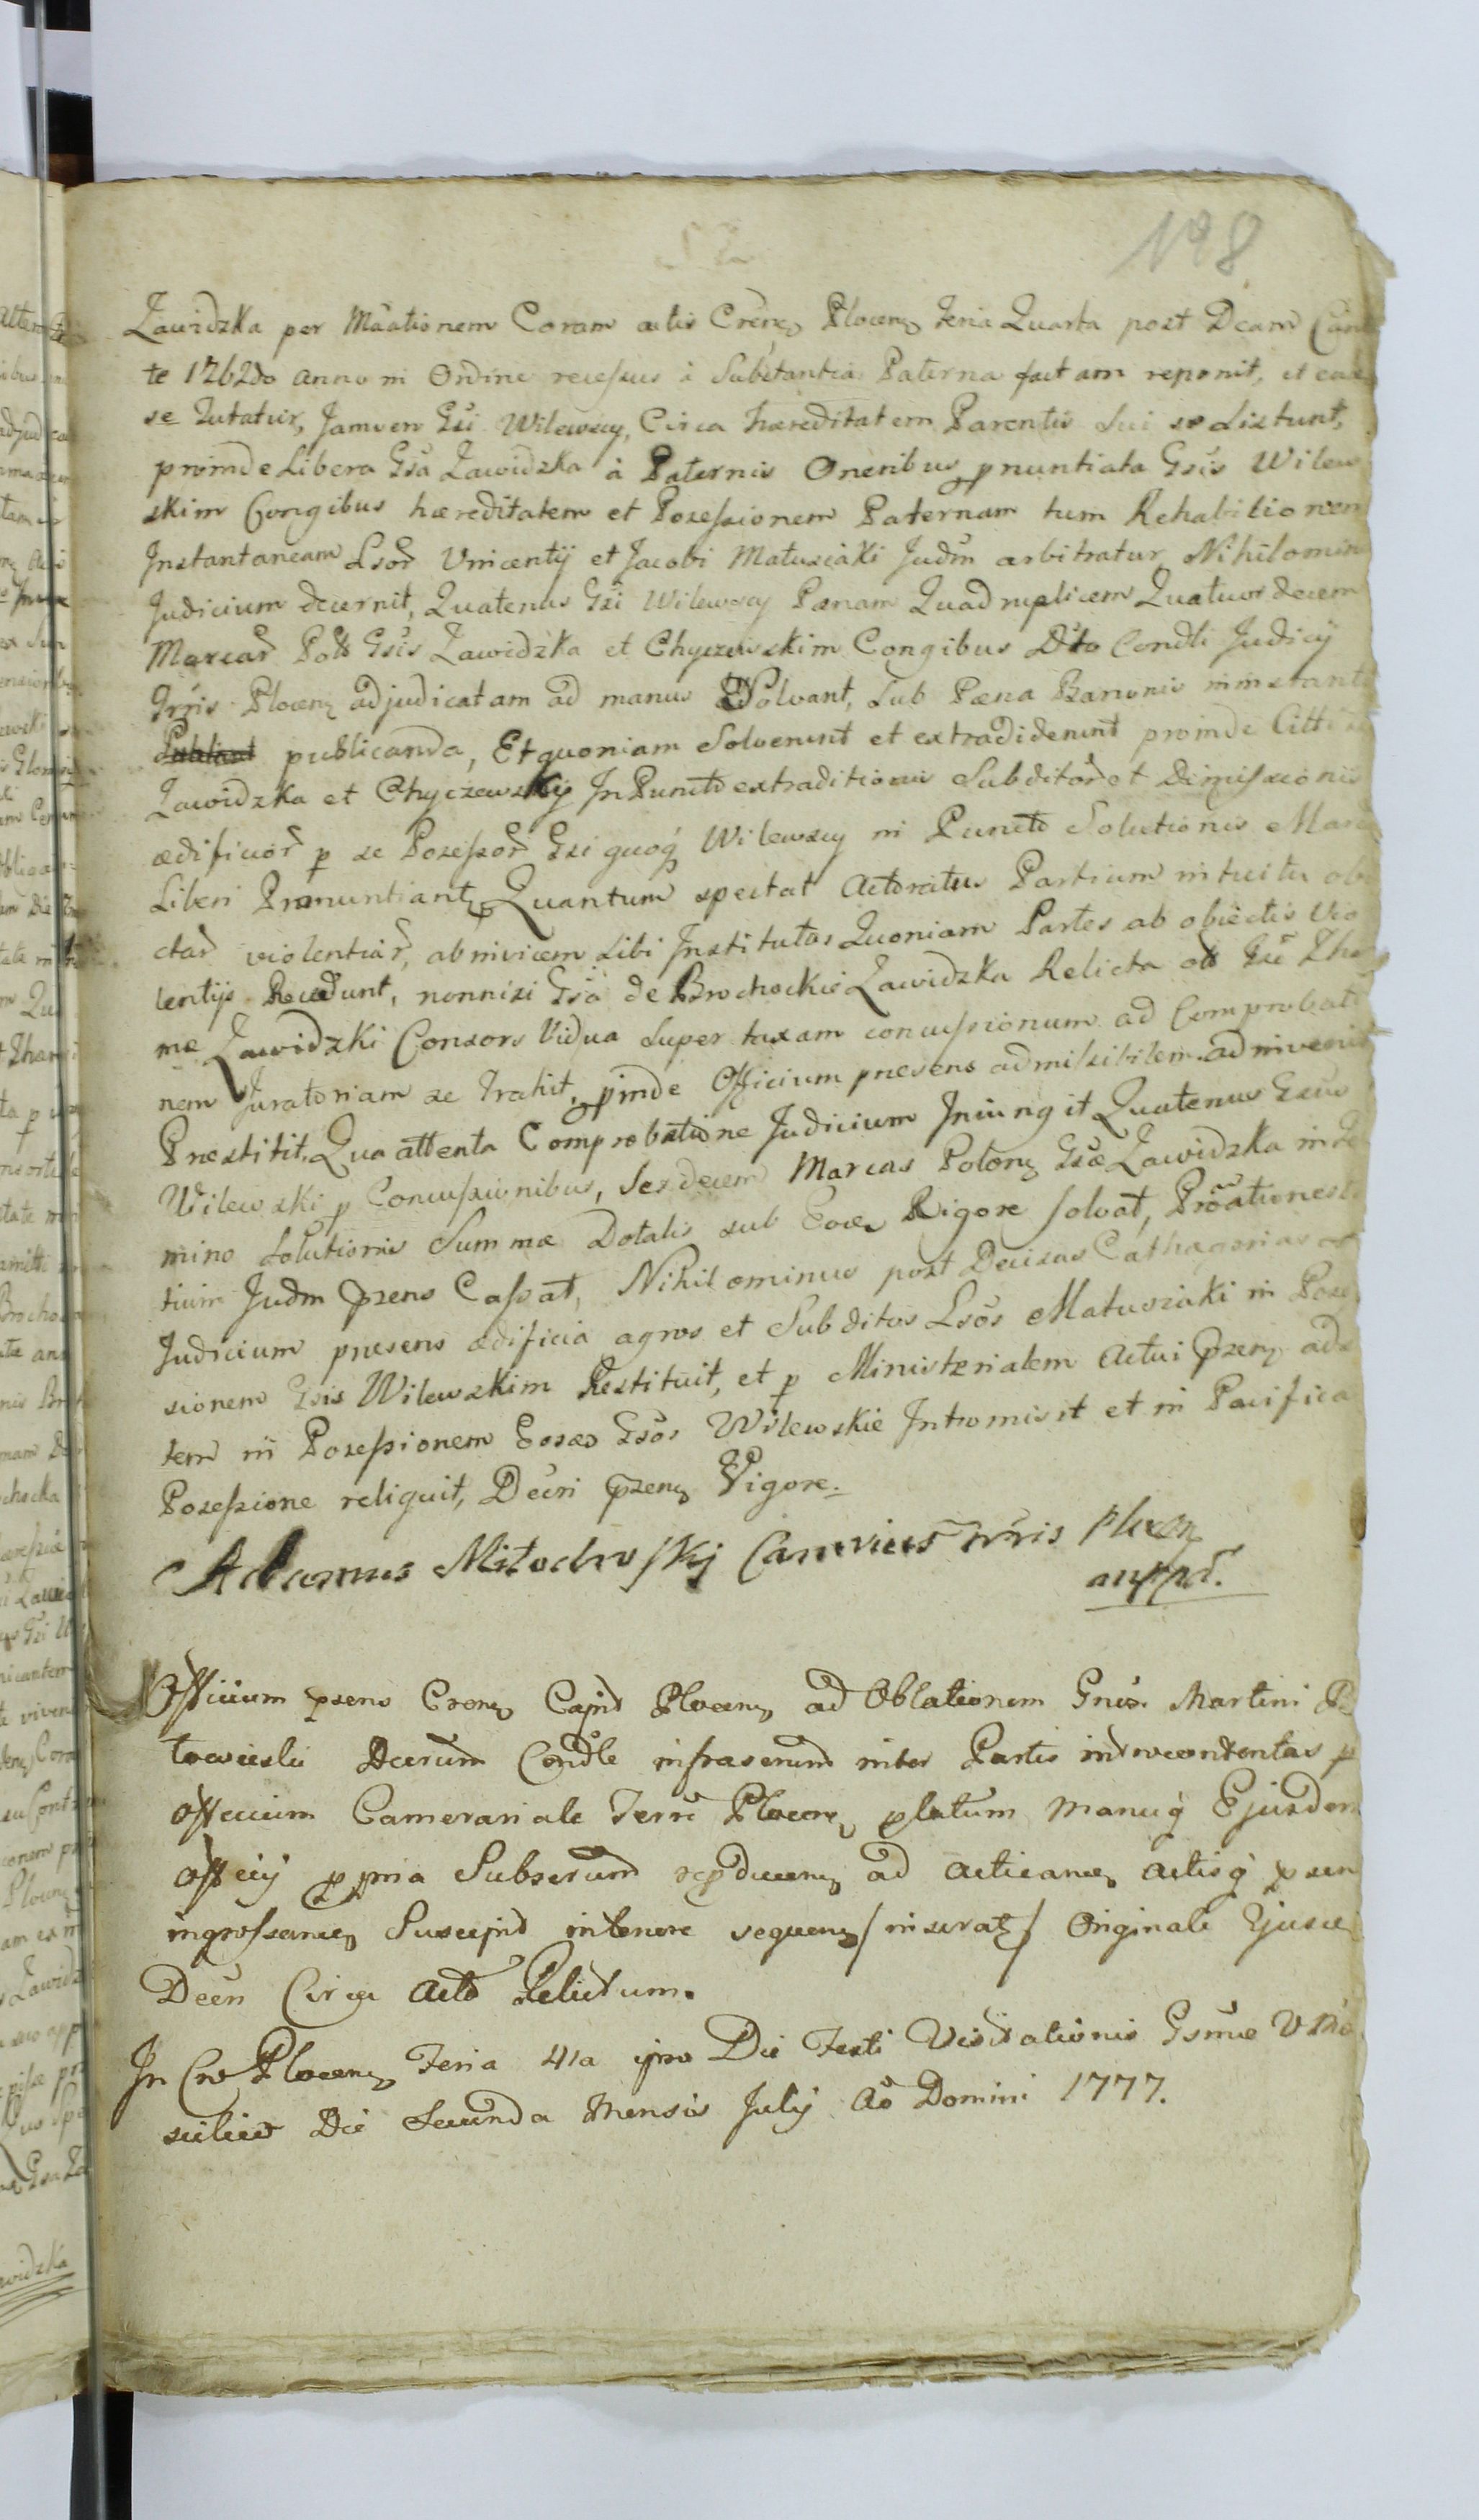 198
Zawidzka per Mãationem Coram actis Crẽnẽ Plocenẽ Feria Quarta post Dcam Can
te 1762do anno in Ordine recessus à Substantia Paterna factam reponit, et ea
se Tutatur, Jamvero Gsi Wilewscy, Circa hæreditatem Parentis Sui se Sistunt,
proinde Libera Gsa Zawidzka à Paternis Oneribus pnuntiata Gsis Wilew
skim Congibus hæreditatem et Possessionem Paternam tum Rehabitionem
Instantaneam Lsor Vincentij et Jacobi Matusiaki Judm arbitratur, Nihilomin
Judicium decernit, Quatenus Gsi Wilewscy Pænam Quadruplicem Quatuordecem
Marcar Pol Gsis Zawidzka et Chyczewskim Congibus Dto Condli Judicij
Trris Plocenẽ adjudicatam ad manus Solvant, Sub Pæna Bannonis in instanti
Publicant publicanda, Et quoniam Solverunt et extradiderunt proinde Citti
Zawidzka et Chyczewskij In Puncto extraditionis Subditor et Dimissionis
ædificior p se Possessor Gsi quoq Wilewscy in Puncto Solutionis Marc
Liberi Pronuntiant, Quantum spectat Actoratus Partium intuitu ob
ctar violentiar, ab invicem Sibi Institutos Quoniam Partes ab obiectis Vio
lentijs Recedunt, nonnisi Gsa de Brochockie Zawidzka Relicta olt Gsi Tho
mæ Zawidzki Consors Vidua Super taxam concussionum ad Comprobatio
nem Juratoriam se Trahit, pinde Officium prænsens admissibilem adinvenit
Præstitit, Qua attenta Comprobatione Judicium Iniungit Quatenus Gsus
Wilewski p Concussionibus, Sexdecem Marcas Polonẽ Gsæ Zawidzka in Te
mino Solutionis Summæ Dotalis sub Eodẽ Rigore solvat, Proationes
tium Judm pzens Cassat, Nihilominus post Decisas Cathagorias
Judicium præsens ædificia agros et Subditos Lsos Matusiaki in Poses
sionem Gsis Wilewskim Restituit, et p Ministerialem Actui pzenẽ ads
tem in Possessionem Eosdẽ Gsos Wilewskie Intromisit et in Pacifica
Possessione reliquit, Decri pzenẽ Vigore.
Adamus Miłodroskj Camrius Trris Plocen
Officium pzens Crenẽ Capit Plocenẽ ad Oblationem Gnis Martini
Decrum Condle infrascrum inter Partes introcontentas p
Officium Camerariale Terræ Plocenẽ platum Manuq Ejusdem
Officij ppria Subscrum repducenẽ ad acticanẽ actisq pzen
ingrossanẽ Suscepit in tenore sequenẽ /inserat/ Originale Ejusdẽ
Decri Circa Acta Relictum.
In Cro Plocenẽ Feria 4ta ipso Die Festi Visitationis Gsmæ V Mã
scilicet Die Secunda Mensis Julij Ao Domini 1777.